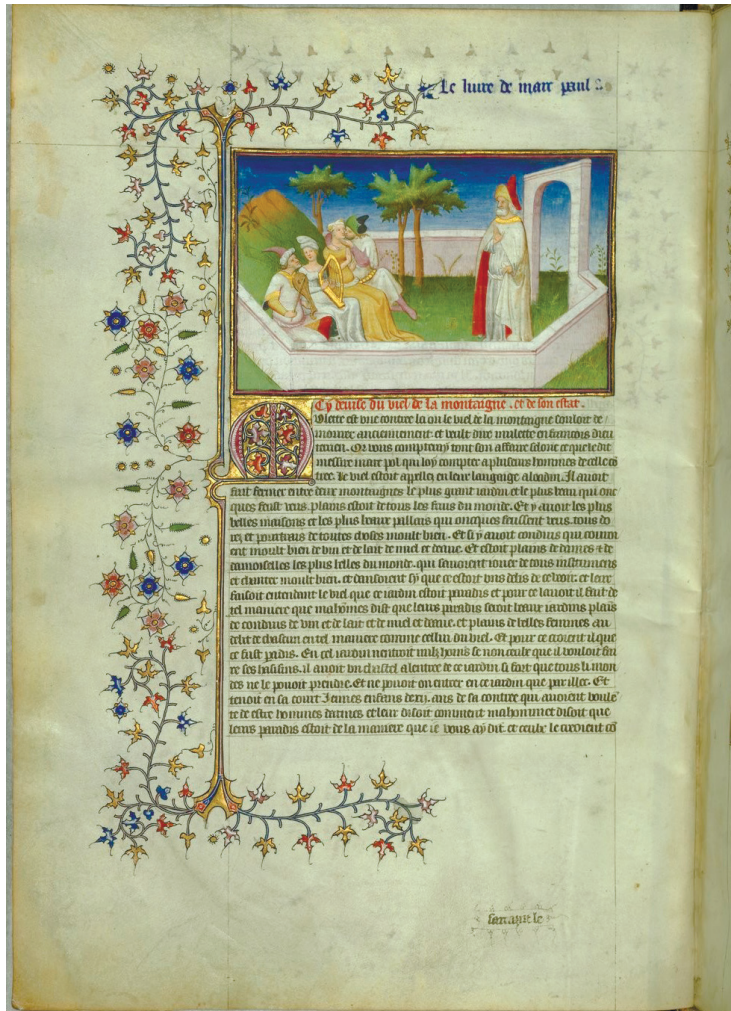 Le liure de marc paul &
Cy deuise du viel de la montaigne . et de son estat .
Mulette est vne contree la ou le viel de la montaigne souloit de
mourer anciennement et vault dire mulette en francois dieu
terrien . Or vous compteray tout son affaire selonc ce que ledit
messire marc pol qui loy compter a plusieurs hommes de celle co
tree . Le viel estoit appellez en leur language aloadin . Il auoit
fait fermer entre deux montaignes le plus grant iardin et le plus beau qui onc
ques feust veus . plains estoit de tous les fruis du monde . Et y auoit les plus
belles maisons et les plus beaux pallais qui oncques feussent veus . tous do
rez et pourtrais de toutes choses moult bien . Et si y auoit conduis qui couroi
ent moult bien de vin et de lait de miel et deaue . Et estoit plains de dames et de
damoiselles les plus belles du monde . qui sauoient iouer de tous instrumens
et chanter moult bien . et dansoient sy que ce estoit vns delis de ce veoir . et leur
faisoit entendant le viel que ce iardin estoit paradis et pour ce lauoit il fait de
tel maniere que mahommes dist que leurs paradis seront beaux iardins plains
de conduis de vin et de lait et de miel et deaue . et plains de belles femmes au
delit de chascun en tel maniere comme cellui du viel . Et pour ce croient il que
ce fust paradis . En cel iardin nentroit nulz homs se non ceulx que il vouloit fai
re ses hasisins . il auoit vn chastel a lentree de ce iardin si fort que tous li mon
des ne le pouoit prendre . Et ne pouoit on entrer en ce iardin que par illec . Et
tenoit en sa court Jeunes enfans de xij . ans de sa contree qui auoient voule
te de estre hommes darmes et leur disoit comment mahommet disoit que
leurs paradis estoit de la maniere que ie vous ay dit . et ceulx le creoient co